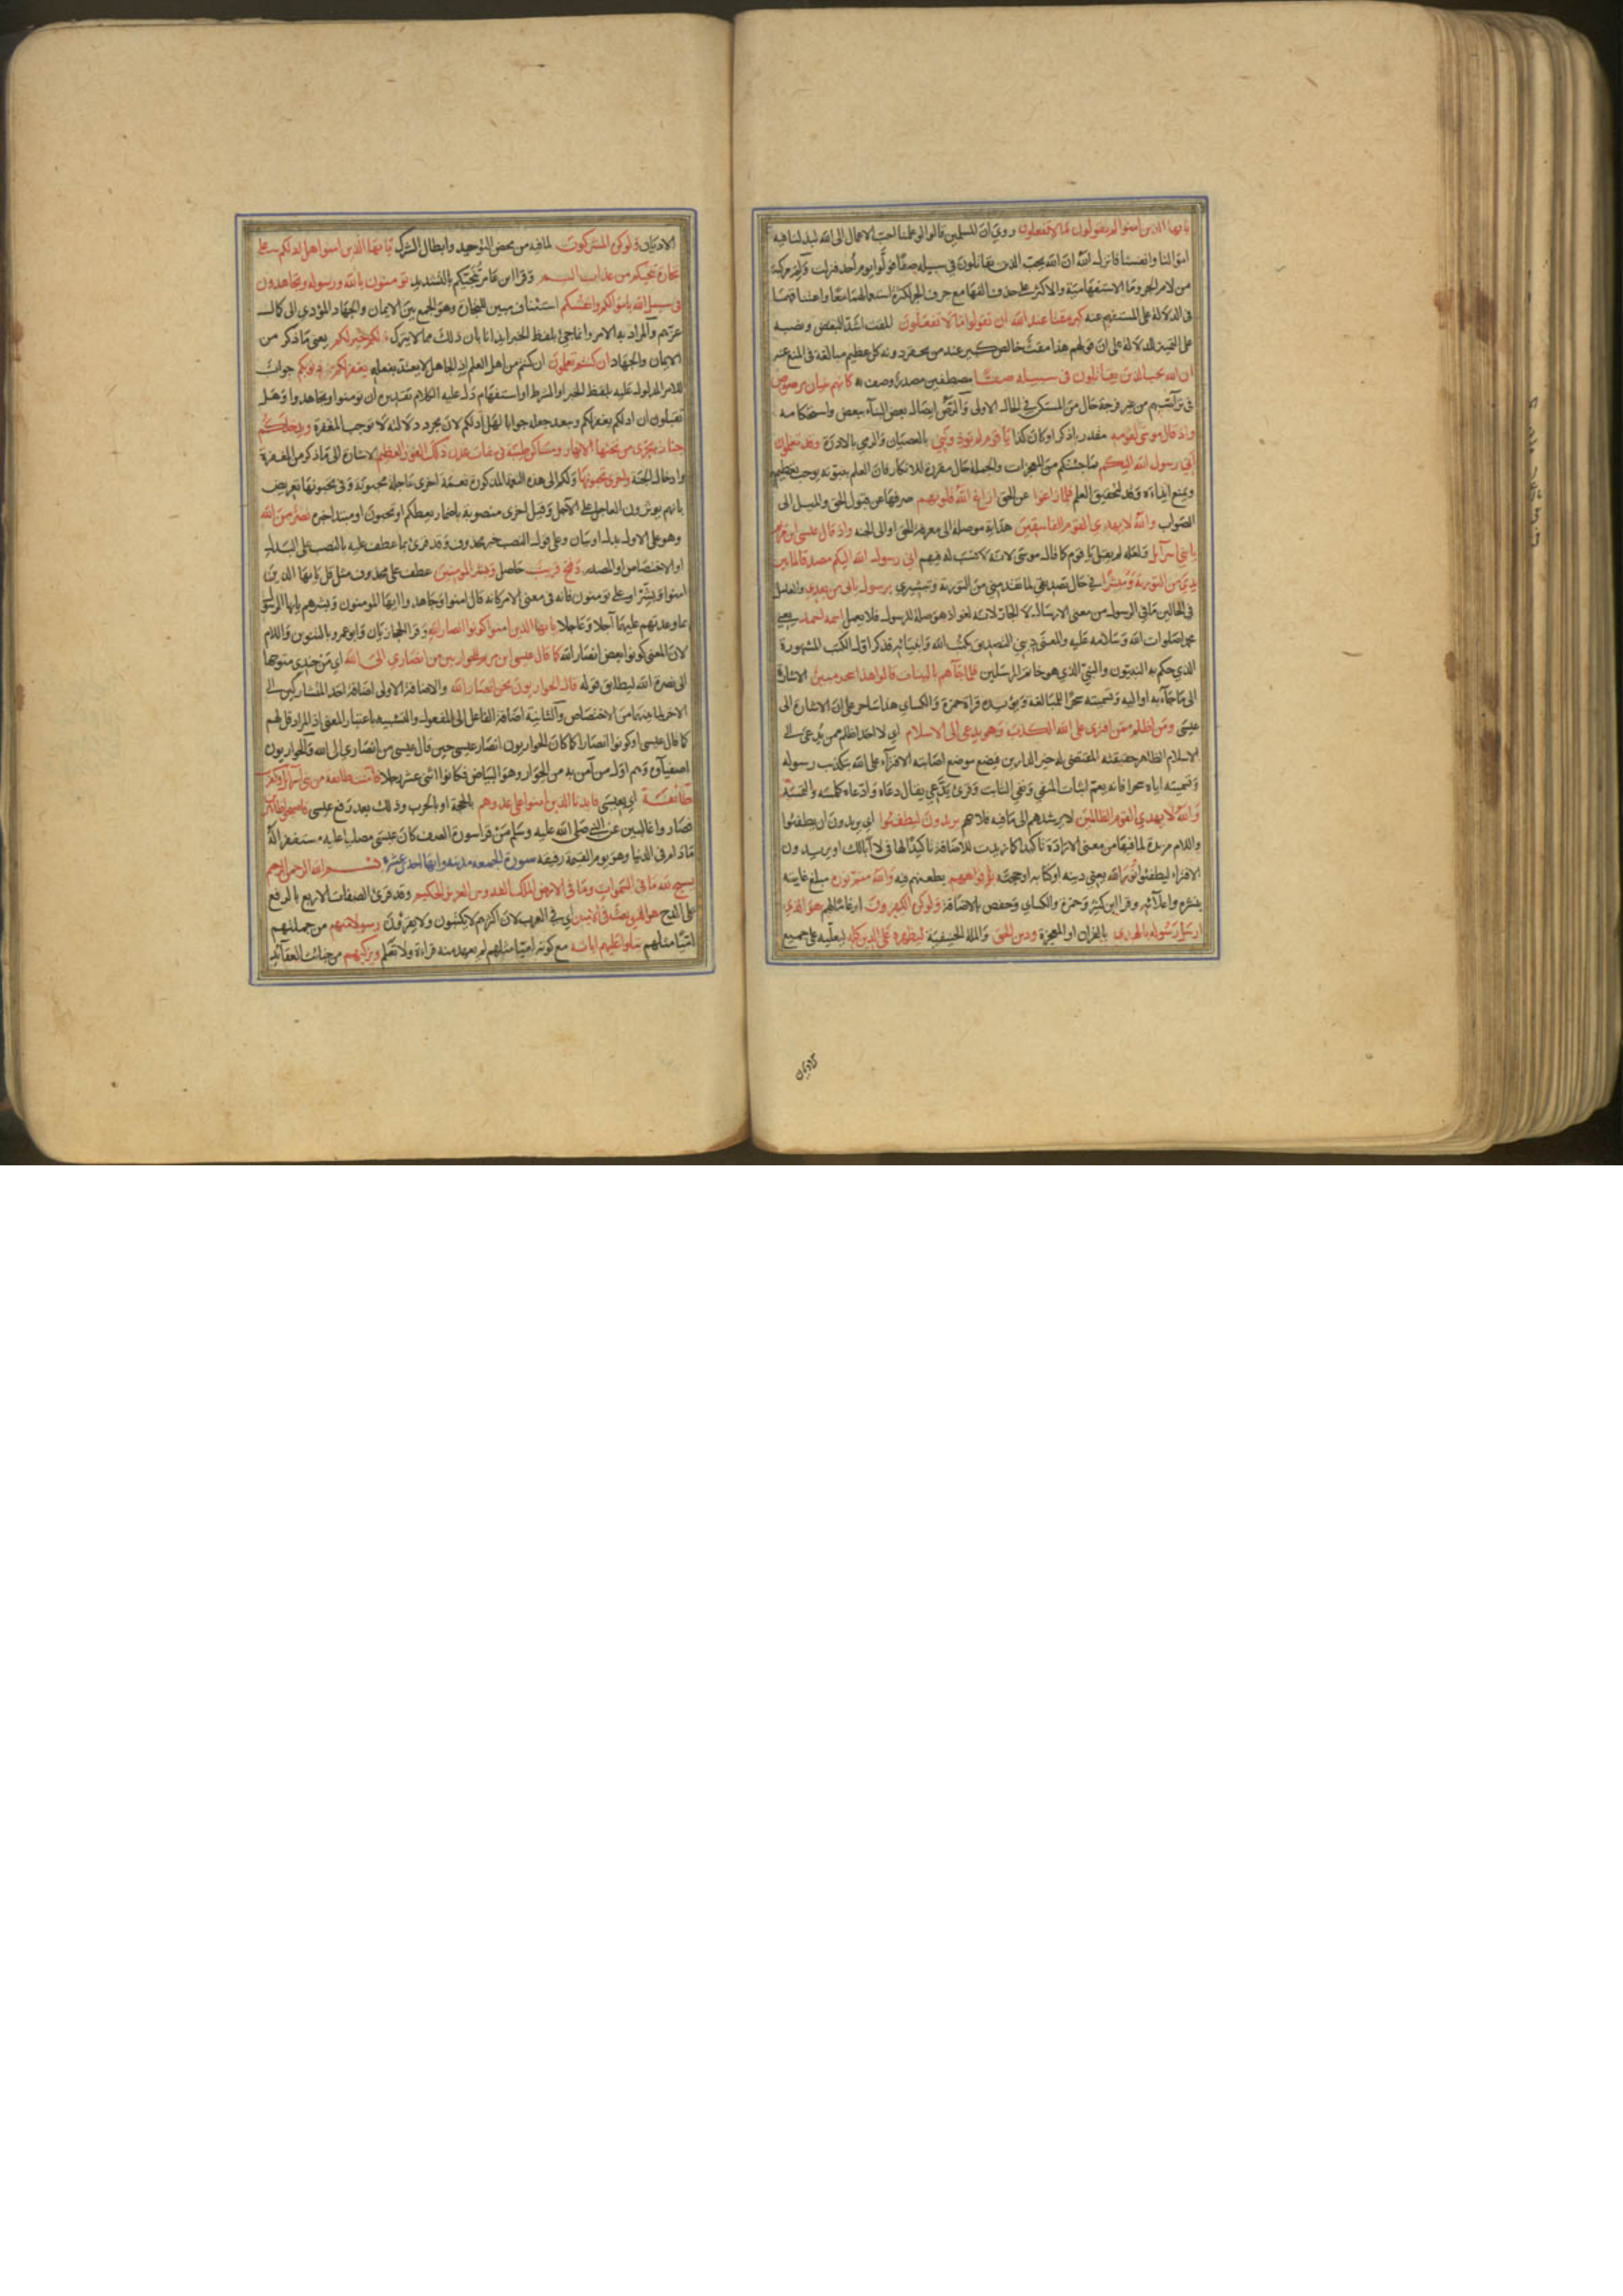 يا ايها الذين امنوا لم تقولون ما لا تفعلون روي ان المسلمين قالوا لو علمنا احب الاعمال الى الله لبذلنا فيه
اموالنا وانفسنا فانزل الله ان الله يحب الذين يقاتلون في سبيله صفا فولوا يوم أحد فنزلت ولم مركبة
من لام الجر وما الاستفهامية والاكثر على حذف الفها مع حرف الجر لكثرة استعمالهما معا واعتناقهما
في الدلالة على المستفهم عنه كبر مقتا عند الله ان تقولوا ما لا تفعلون المقت اشد البغض ونصبه
على التمييز للدلالة على ان قولهم هذا مقت خالص كبير عند من يحقر دونه كل عظيم مبالغة في المنع عنه
ان الله يحب الذين يقاتلون في سبيله صفا مصطفين مصدر وصف به كانهم بنيان مرصوص
في تراصهم من غير فرجة حال من المستكن في الحال الاولى والرص ايصال بعض البناء ببعض واستحكامه
واذ قال موسى لقومه مقدر باذكر او كان كذا يا قوم لم تؤذونني بالعصيان والرمي بالادرة وقد تعلمون
اني رسول الله اليكم بما جئتكم من المعجزات والجملة حال مقررة للانكار فان العلم بنبوته يوجب تعظيمه
ويمنع ايذاءه وقد لتحقيق العلم فلما زاغوا عن الحق ازاغ الله قلوبهم صرفها عن قبول الحق والميل الى
الصواب والله لا يهدي القوم الفاسقين هداية موصلة الى معرفة الحق او الى الجنة واذ قال عيسى ابن مريم
يا بني اسرآيل ولعله لم يقل يا قوم كما قال موسى لانه لا نسب له فيهم اني رسول الله اليكم مصدقا لما بين
يدي من التورية ومبشرا في حال تصديقي لما تقدمني من التورية وتبشيري برسول ياتي من بعدي والعامل
في الحالين ما في الرسول من معنى الارسال لا الجار لانه لغو اذ هو صلة للرسول فلا يعمل اسمه احمد يعني
محمد صلوات الله وسلامه عليه والمعنى ديني التصديق بكتب الله وانبيائه فذكر اول الكتب المشهورة
الذي حكم به النبيون والنبي الذي هو خاتم المرسلين فلما جآءهم بالبينات قالوا هذا سحر مبين الاشارة
الى ما جاء به او اليه وتسميته سحرا للمبالغة ويؤيده قراءة حمزة والكساي هذا ساحر على ان الاشارة الى
عيسى ومن اظلم ممن افترى على الله الكذب وهو يدعى الى الاسلام اي لا احد اظلم ممن يدعى الى
الاسلام الظاهر حقيقته المقتضي له خير الدارين فيضع موضع اجابته الافتراء على الله بتكذيب رسوله
وتسميته اياته سحرا فانه يعم اثبات المنفي ونفي الثابت وقرئ يدعي يقال دعاه وادعاه كلمسه والتمسه
والله لا يهدي القوم الظالمين لا يرشدهم الى ما فيه فلاحهم يريدون ليطفئوا اي يريدون ان يطفئوا
واللام مزيدة لما فيها من معنى الارادة تاكيدا كما زيدت للاضافة تاكيدا لها في لا ابا لك او يريدون
الافتراء ليطفئوا نور الله يعني دينه او كتابه او حجته بافواههم بطعنهم فيه والله متم نوره مبلغ غايته
بنشره واعلائه وقرا ابن كثير وحمزة والكساي وحفص بالاضافة ولو كره الكفرون ارغاما لهم هو الذي
ارسل رسوله بالهدى بالقران او المعجزة ودين الحق والملة الحنيفية ليظهره على الدين كله ليعليه على جميع
الاديان
الاديان ولو كره المشركون لما فيه من محض التوحيد وابطال الشرك يا ايها الذين امنوا هل ادلكم على
تجارة تنجيكم من عذاب اليم وقرا ابن عامر تنجيكم بالتشديد تؤمنون بالله ورسوله وتجاهدون
في سبيل الله باموالكم وانفسكم استئناف مبين للتجارة وهو الجمع بين الايمان والجهاد المؤدي الى كمال
عزهم والمراد به الامر وانما جئ بلفظ الخبر ايذانا بان ذلك مما لا يترك ذلكم خير لكم يعني ما ذكر من
الايمان والجهاد ان كنتم تعلمون ان كنتم من اهل العلم اذ الجاهل لا يعتد بفعله يغفر لكم ذنوبكم جواب
للامر المدلول عليه بلفظ الخبر او لشرط او استفهام دل عليه الكلام تقديره ان تؤمنوا وتجاهدوا او هل
تقبلون ان ادلكم يغفر لكم ويبعد جعله جوابا لهل ادلكم لان مجرد دلالته لا توجب المغفرة ويدخلكم
جنات تجري من تحتها الانهار ومساكن طيبة في جنات عدن ذلك الفوز العظيم الاشارة الى ما ذكر من المغفرة
وادخال الجنة واخرى تحبونها ولكم الى هذه النعمة المذكورة نعمة اخرى عاجلة محبوبة وفي تحبونها تعريض
بانهم يوثرون العاجل على الآجل وقيل اخرى منصوبة باضمار يعطكم او تحبون او مبتدا خبره نصر من الله
وهو على الاول بدل او بيان وعلى قول النصب خبر محذوف وقد قرئ بما عطف عليه بالنصب على البدل
او الاختصاص او المصدر وفتح قريب حاصل وبشر المومنين عطف على محذوف مثل قل يا ايها الذين
امنوا وبشر او على تؤمنون فانه في معنى الامر كانه قال امنوا وجاهدوا ايها المومنون وبشرهم يا ايها الرسول
بما وعدتهم عليهما آجلا وعاجلا يا ايها الذين امنوا كونوا انصار الله وقرا الحجازيان وابو عمرو بالتنوين واللام
لان المعنى كونوا بعض انصار الله كما قال عيسى ابن مريم للحواريين من انصاري الى الله اي من جندي متوجها
الى نصرة الله ليطابق قوله قال الحواريون نحن انصار الله والاضافة الاولى اضافة احد المتشاركين الى
الاخر لما بينهما من الاختصاص والثانية اضافة الفاعل الى المفعول والتشبيه باعتبار المعنى اذ المراد قل لهم
كما قال عيسى او كونوا انصارا كما كان الحواريون انصار عيسى حين قال عيسى من انصاري الى الله والحواريون
اصفياؤه وهم اول من آمن به من الحوار وهو البياض فكانوا اثنى عشر رجلا فآمنت طائفة من بني اسرائيل وكفرت
طائفة اي بعيسى فايدنا الذين امنوا على عدوهم بالحجة او بالحرب وذلك بعد رفع عيسى فاصبحوا ظاهرين
فصاروا غالبين عن النبي صلى الله عليه وسلم من قرا سورة الصف كان عيسى مصليا عليه مستغفرا له
ما دام في الدنيا وهو يوم القيمة رفيقه سورة الجمعة مدينة وايها احدى عشرة بسم الله الرحمن الرحيم
يسبح لله ما في السموات وما في الارض الملك القدوس العزيز الحكيم وقد قرئ الصفات الاربع بالرفع
على المدح هو الذي بعث في الاميين اي في العرب لان اكثرهم لا يكتبون ولا يقرؤن رسولا منهم من جملتهم
اميا مثلهم يتلوا عليهم اياته مع كونه اميا مثلهم لم يعهد منه قراءة ولا تعلم ويزكيهم من خبائث العقآئد